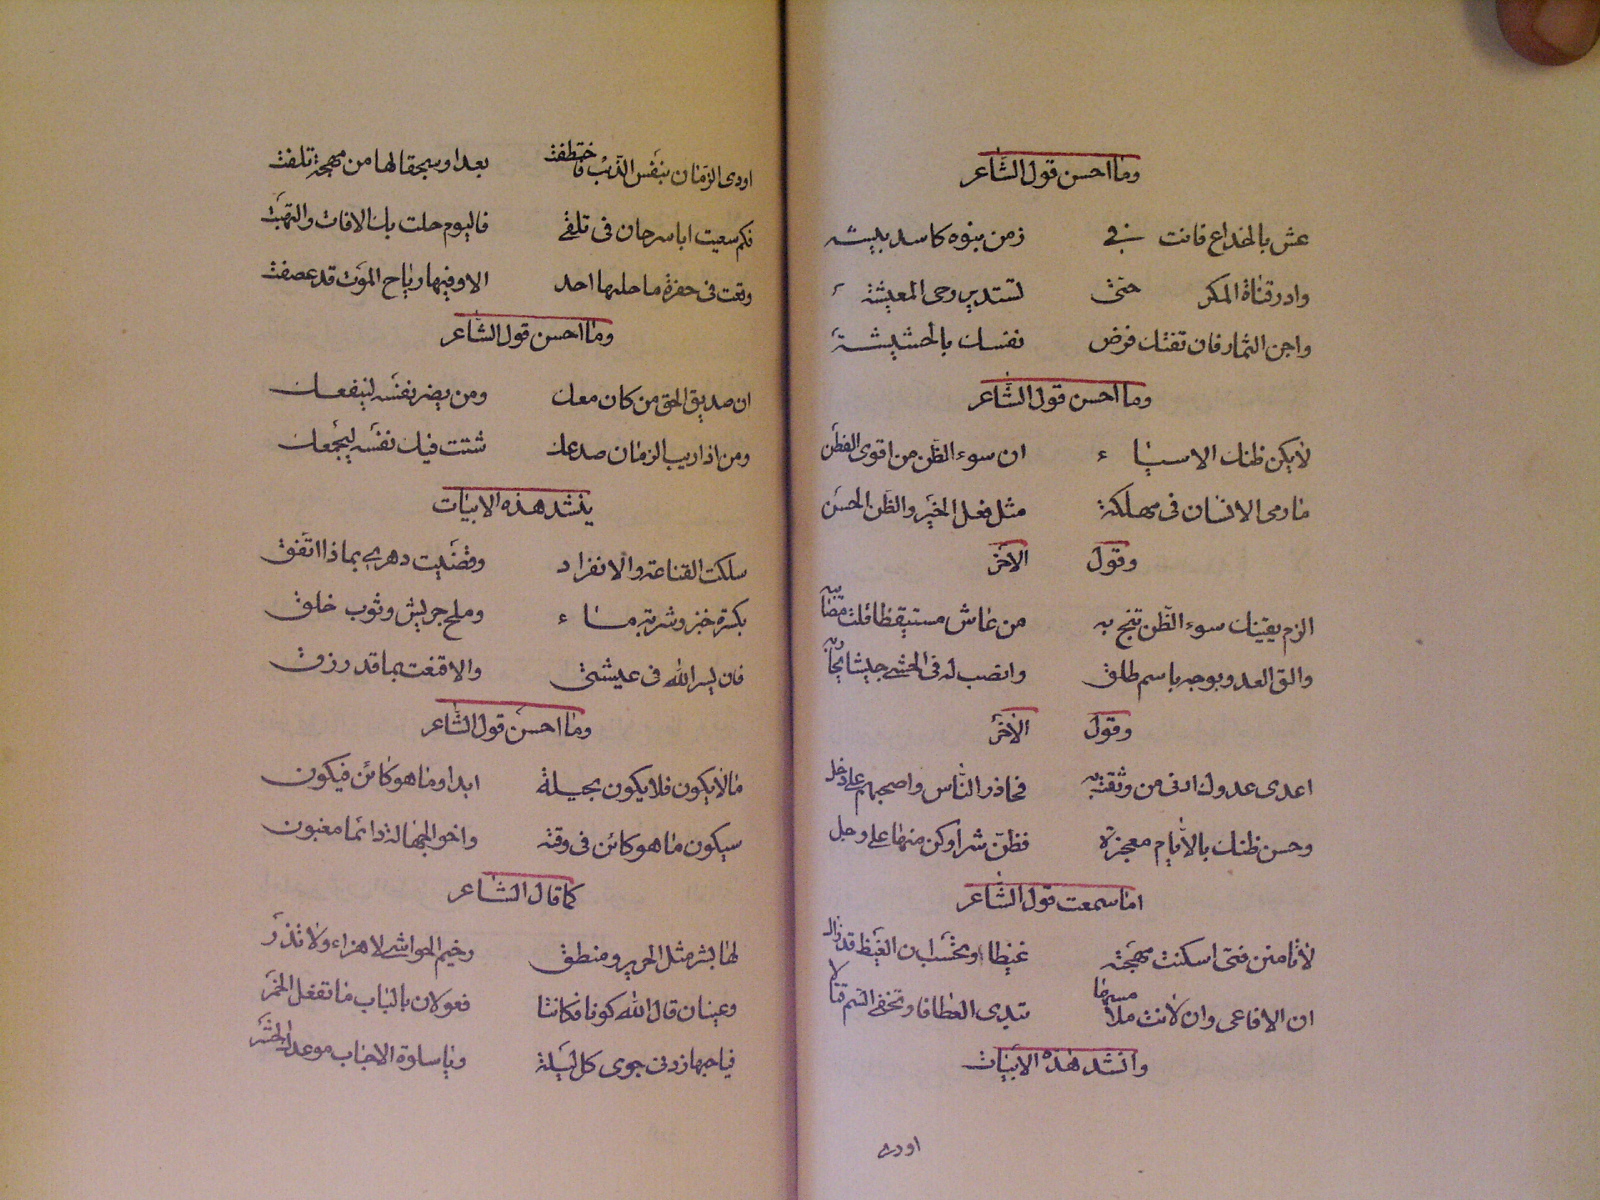 وما احسن قول الشاعر
عش بالخداع فانت في زمن بنوه كاسد بيشه
وادر قناة المكر حتى تستدير رحى المعيشة
واجن الثمار فان تفتك فرض نفسك بالحشيشة
وما احسن قول الشاعر
لا يكن ظنك الا سيا ء ان سوء الظن من اقوى الفطن
ما رمى الانسان في مهلكة مثل فعل الخير والظن الحسن
وقول الاخر
الزم يقينك سوء الظن تنج به من عاش مستيقظا قلت مصائبه
والق العدو بوجه باسم طلق وانصب له في الحشى جيشا يحاربه
وقول الاخر
اعدى عدوك ادنى من وثقت به فحاذر الناس واصحبهم على دخل
وحسن ظنك بالايام معجزة فظن شرا وكن منها على وجل
اما سمعت قول الشاعر
لا تامنن فتى اسكنت مهجته غيظا وتحسب ان الغيظ قد زالا
ان الافاعى وان لانت ملامسها تبدى انعطافا وتخفى السم قتالا
وانشد هذه الابيات
اودى
اودى الزمان بنفس الذئب فاختطفت بعدا وسحقا لها من مهجة تلفت
فكم سعيت ابا سرحان في تلفي فاليوم حلت بك الافات والتهبت
وقعت في حفرة ما حلها احد الا وفيها رياح الموت قد عصفت
وما احسن قول الشاعر
ان صديق الحق من كان معك ومن يضر نفسه لينفعك
ومن اذا ريب الزمان صدعك شتت فيك نفسه ليجمعك
ينشد هذه الابيات
سلكت القناعة والانفراد وقضيت دهري بماذا اتفق
بكسرة خبز وشربة ما ء وملح جريش وثوب خلق
فان يسر الله في عيشتي والا قنعت بما قد رزق
وما احسن قول الشاعر
ما لا يكون فلا يكون بحيلة ابدا وما هو كائن فيكون
سيكون ما هو كائن في وقته واخو الجهالة دائما مغبون
كما قال الشاعر
لها بشر مثل الحرير ومنطق رخيم الحواشي لا هزاء ولا نذر
وعينان قال الله كونا فكانتا فعولان بالباب ما تفعل الخمر
فيا حبها زدني جوى كل ليلة ويا سلوة الاحباب موعدك الحشر